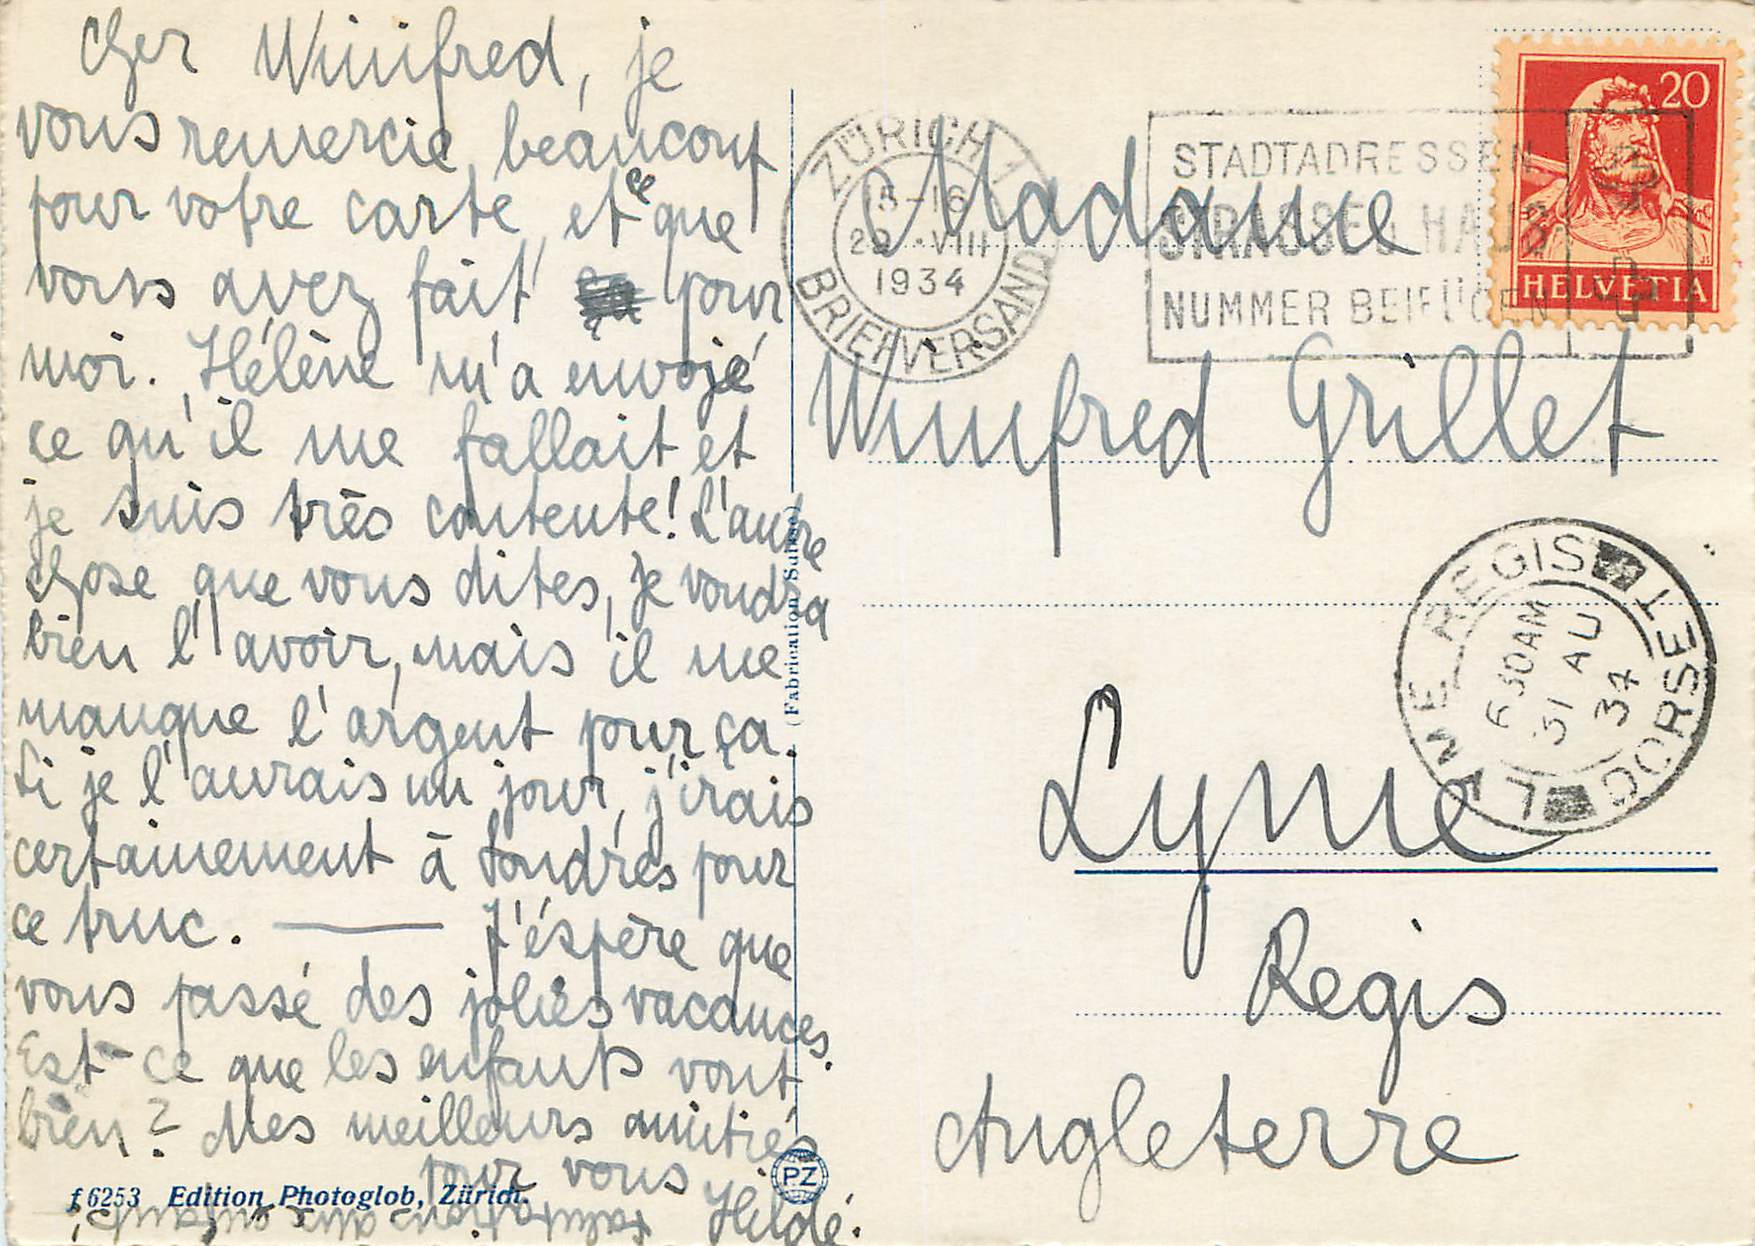 Cher Winifred, je
vous remercie beaucoup
pour votre carte et ce que
vous avez fait pour
moi. Hélène m'a envojé
ce qu'il me fallait et
je suis très contente! L'autre
chose que vous dites, je voudra
bien l'avoir, mais il me
manque l'argent pour ça.
Si je l'aurais un jour, j'irais
certainement à Londres pour
ce truc. — J'éspère que
vous passé des jolies vacances.
Est-ce que les enfants vont
bien? Mes meilleurs amitiés
pour vous
Hilde.
f 6253 Edition Photoglob, Zürich.
PZ
(Fabrication Suisse)
ZÜRICH 1
15-16
29. VIII
1934
BRIEFVERSAND
STADTADRESSEN
STRASSE U. HAUS
NUMMER BEIFÜGEN
20
HELVETIA
Madame
Winifred Grillet
Lyme
Regis
Angleterre
LYME REGIS DORSET
6 30 AM
31 AU
34